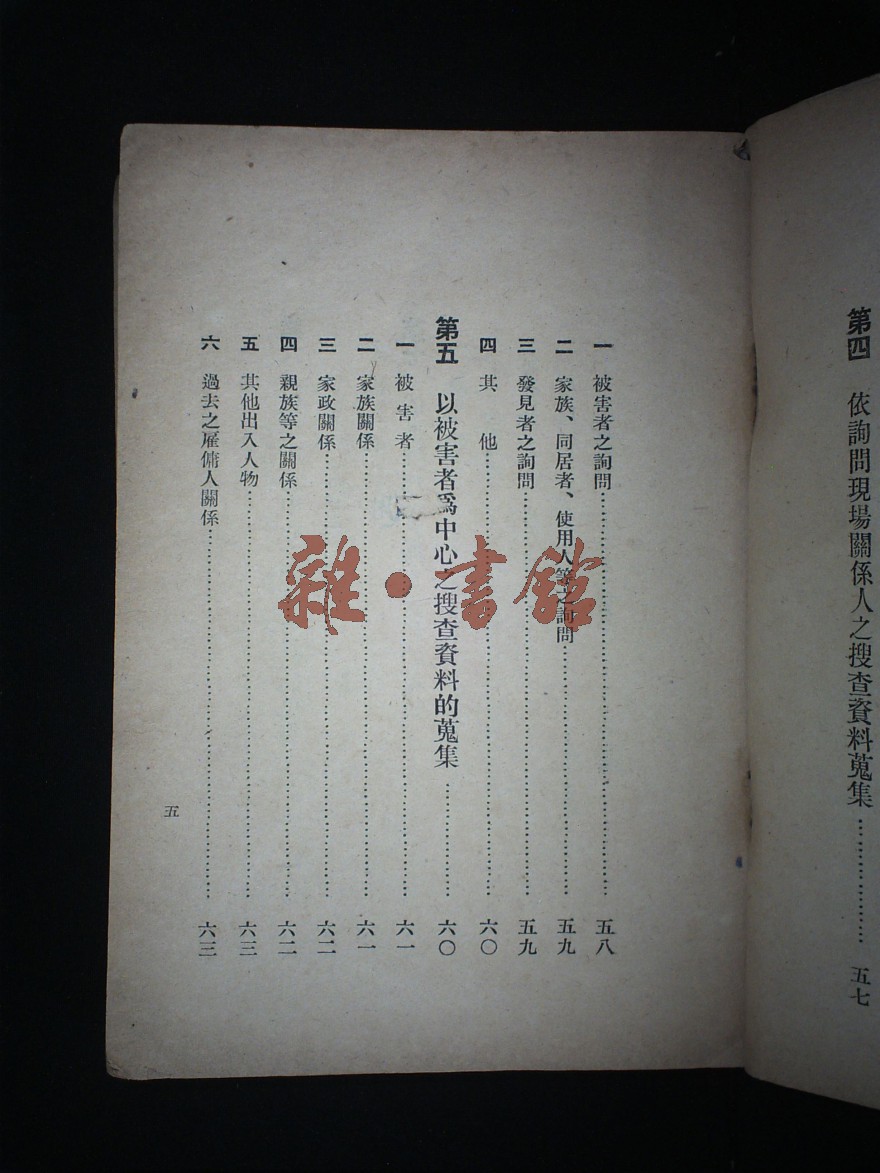 第四　依詢問現場關係人之搜查資料蒐集…………………五七
一　被害者之詢問…………………五八
二　家族、同居者、使用人等之詢問…………………五九
三　發見者之詢問…………………五九
四　其　他…………………六〇
第五　以被害者爲中心之搜查資料的蒐集…………………六〇
一　被　害　者…………………六一
二　家族關係…………………六一
三　家政關係…………………六二
四　親族等之關係…………………六二
五　其他出入人物…………………六三
六　過去之雇傭人關係…………………六三
五
雜·書館